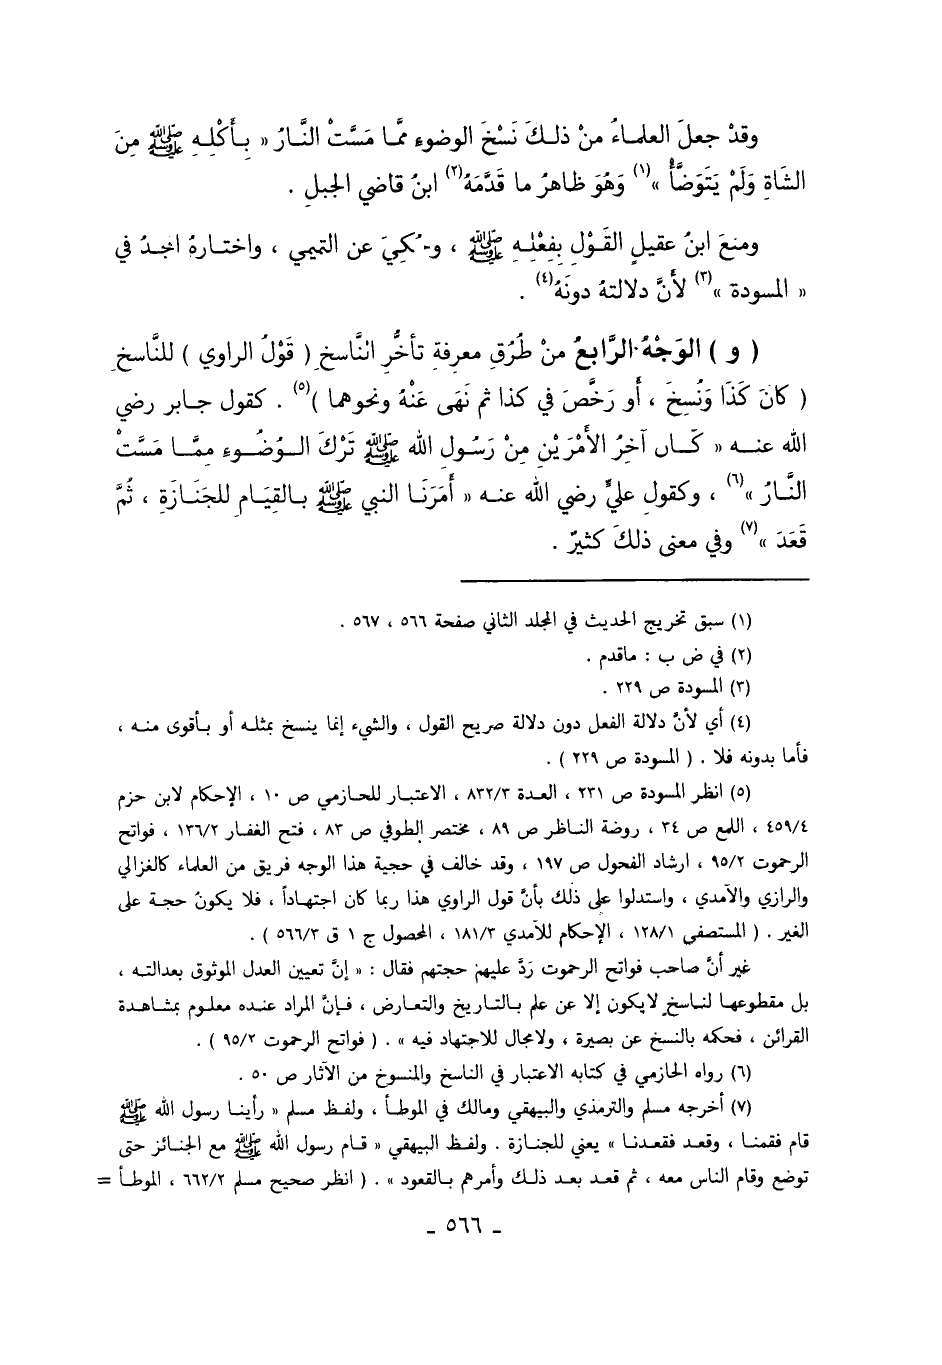 وقدْ جعلَ العلماءُ منْ ذلكَ نَسْخَ الوضوءِ ممَّا مَسَّتْ النَّارُ « بِأَكْلِهِ ﷺ مِنَ
الشَاةِ وَلَمْ يَتَوَضَّأْ »(١) وَهُوَ ظاهرُ ما قَدَّمَهُ(٢) ابنُ قاضي الجبلِ .
ومنعَ ابنُ عقيلٍ القَوْل بِفِعْلِهِ ﷺ ، وحُكِيَ عن التميمي ، واختارهُ المجدُ في
« المسودة »(٣) لأنَّ دلالتهُ دونَهُ(٤) .
( و ) الوَجْهُ الرَّابعُ منْ طُرُقِ معرفةِ تأخُّرِ النَّاسخِ ( قَوْلُ الراوي ) للنَّاسخِ
( كانَ كَذَا وَنُسِخَ ، أو رَخَّصَ في كذا ثم نَهَى عَنْهُ ونحوهما )(٥) . كقول جابر رضي
الله عنه « كان آخِرُ الأَمْرَيْنِ مِنْ رَسُولِ الله ﷺ تَرْكَ الوُضُوءِ مِمَّا مَسَّتْ
النَّارُ »(٦) ، وكقولِ عليٍّ رضي الله عنه « أَمَرَنَا النبي ﷺ بالقِيَامِ للجَنَازَةِ ، ثُمَّ
قَعَدَ »(٧) وفي معنى ذلكَ كثيرٌ .
(١) سبق تخريج الحديث في المجلد الثاني صفحة ٥٦٦ ، ٥٦٧ .
(٢) في ض ب : ماقدم .
(٣) المسودة ص ٢٢٩ .
(٤) أي لأنَّ دلالة الفعل دون دلالة صريح القول ، والشيء إنما ينسخ بمثله أو بأقوى منه ،
فأما بدونه فلا . ( المسودة ص ٢٢٩ ) .
(٥) انظر المسودة ص ٢٣١ ، العدة ٨٣٢/٣ ، الاعتبار للحازمي ص ١٠ ، الإحكام لابن حزم
٤٥٩/٤ ، اللمع ص ٣٤ ، روضة الناظر ص ٨٩ ، مختصر الطوفي ص ٨٣ ، فتح الغفار ١٣٦/٢ ، فواتح
الرحموت ٩٥/٢ ، ارشاد الفحول ص ١٩٧ ، وقد خالف في حجية هذا الوجه فريق من العلماء كالغزالي
والرازي والآمدي ، واستدلوا على ذلك بأنَّ قول الراوي هذا ربما كان اجتهاداً ، فلا يكونُ حجة على
الغير . ( المستصفى ١٢٨/١ ، الإحكام للآمدي ١٨١/٣ ، المحصول ج ١ ق ٥٦٦/٣ ) .
غير أنَّ صاحب فواتح الرحموت رَدَّ عليهم حجتهم فقال : « إنَّ تعيين العدل الموثوق بعدالته ،
بل مقطوعها لناسخٍ لايكون إلا عن علم بالتاريخ والتعارض ، فإنَّ المراد عنده معلوم بمشاهدة
القرائن ، فحكمه بالنسخ عن بصيرة ، ولامجال للاجتهاد فيه » . ( فواتح الرحموت ٩٥/٢ ) .
(٦) رواه الحازمي في كتابه الاعتبار في الناسخ والمنسوخ من الآثار ص ٥٠ .
(٧) أخرجه مسلم والترمذي والبيهقي ومالك في الموطأ ، ولفظ مسلم « رأينا رسول الله ﷺ
قام فقمنا ، وقعد فقعدنا » يعني للجنازة . ولفظ البيهقي « قام رسول الله ﷺ مع الجنائز حتى
توضع وقام الناس معه ، ثم قعد بعد ذلك وأمرهم بالقعود » . ( انظر صحيح مسلم ٦٦٢/٢ ، الموطأ =
- ٥٦٦ -